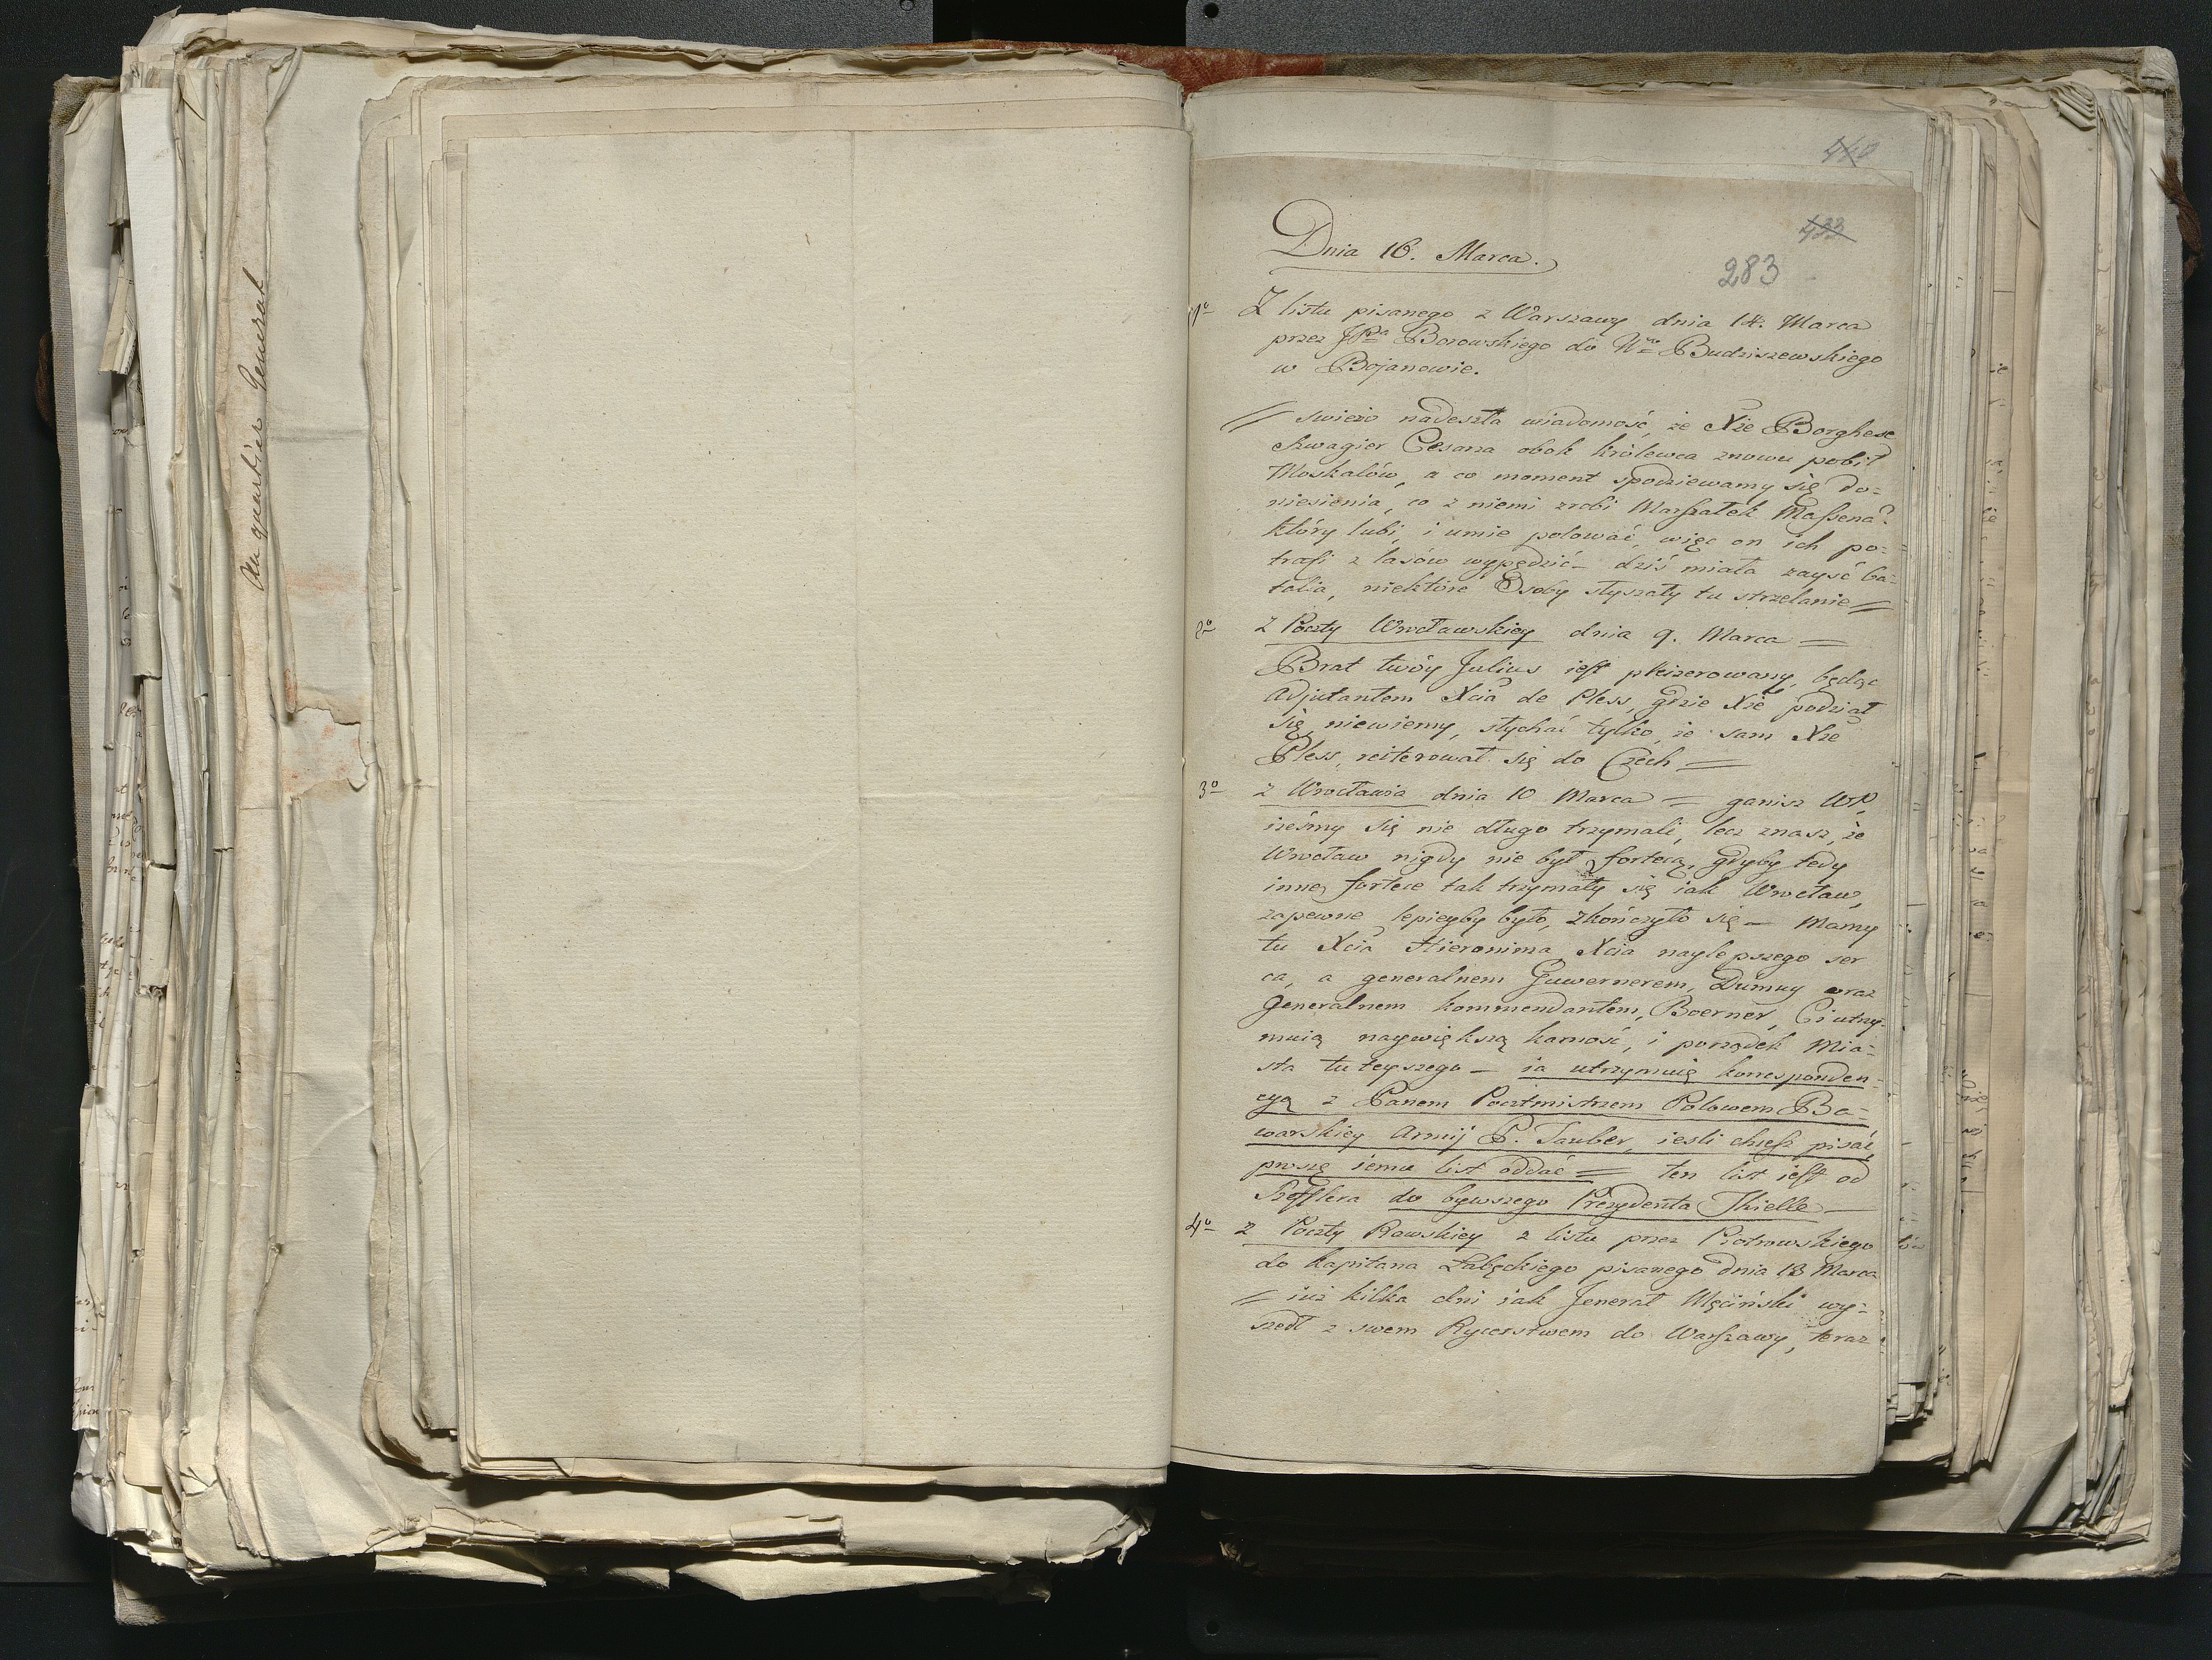 Au quartier General
440
433
283
Dnia 16. Marca.
1º Z listu pisanego z Warszawy dnia 14. Marca
przez JPa Borowskiego do Wgo Budziszewskiego
w Bojanowie.
// swieżo nadeszła wiadomość, że Xże Borghese
szwagier Cesarza obok królewca znowu pobił
Moskalów, a co moment spodziewamy się do=
niesienia, co z niemi zrobi Marszałek Massena?
który lubi, i umie polować, więc on ich po=
trafi z lasów wypędzić – dziś miała zayść ba=
talia, niektóre Osoby słyszały tu strzelanie //
2º Z Poczty Wrocławskiey dnia 9. Marca =
Brat twóy Julius iest pleizerowany, będąc
Adjutantem Xcia de Pless, gdzie Xże podział
się, niewiemy, słychać tylko, że sam Xże
Pless, reiterował się do Czech =
3º z Wrocławia dnia 10 Marca = ganisz WP.
ześmy się nie długo trzymali, lecz znasz, że
Wrocław nigdy nie był fortecą, gdyby tedy
inne fortece tak trzymały się iak Wrocław,
zapewne lepieyby było, zkończyło się – Mamy
tu Xcia Hieronima, Xcia naylepszego ser
ca, a generalnem Guwernerem, Dumuy oraz
Generalnem kommendantem, Boerner, Ci utrzy=
muią naywiększą karność, i porządek Mia=
sta tuteyszego – ia utrzymuię korresponden=
cyą z Panem Pocztmistrzem Polowem Ba=
warskiey Armij P. Tauber, iesli chcesz pisać,
proszę iemu list oddać = ten list iest od
do bywszego Prezydenta Thielle —
4º z Poczty Rawskiey z listu przez Piotrowskiego
do kapitana Łabęckiego pisanego dnia 13 Marca
// iuż kilka dni iak Jenerał Męciński wy=
szedł z swem Rycerstwem do Warszawy, teraz